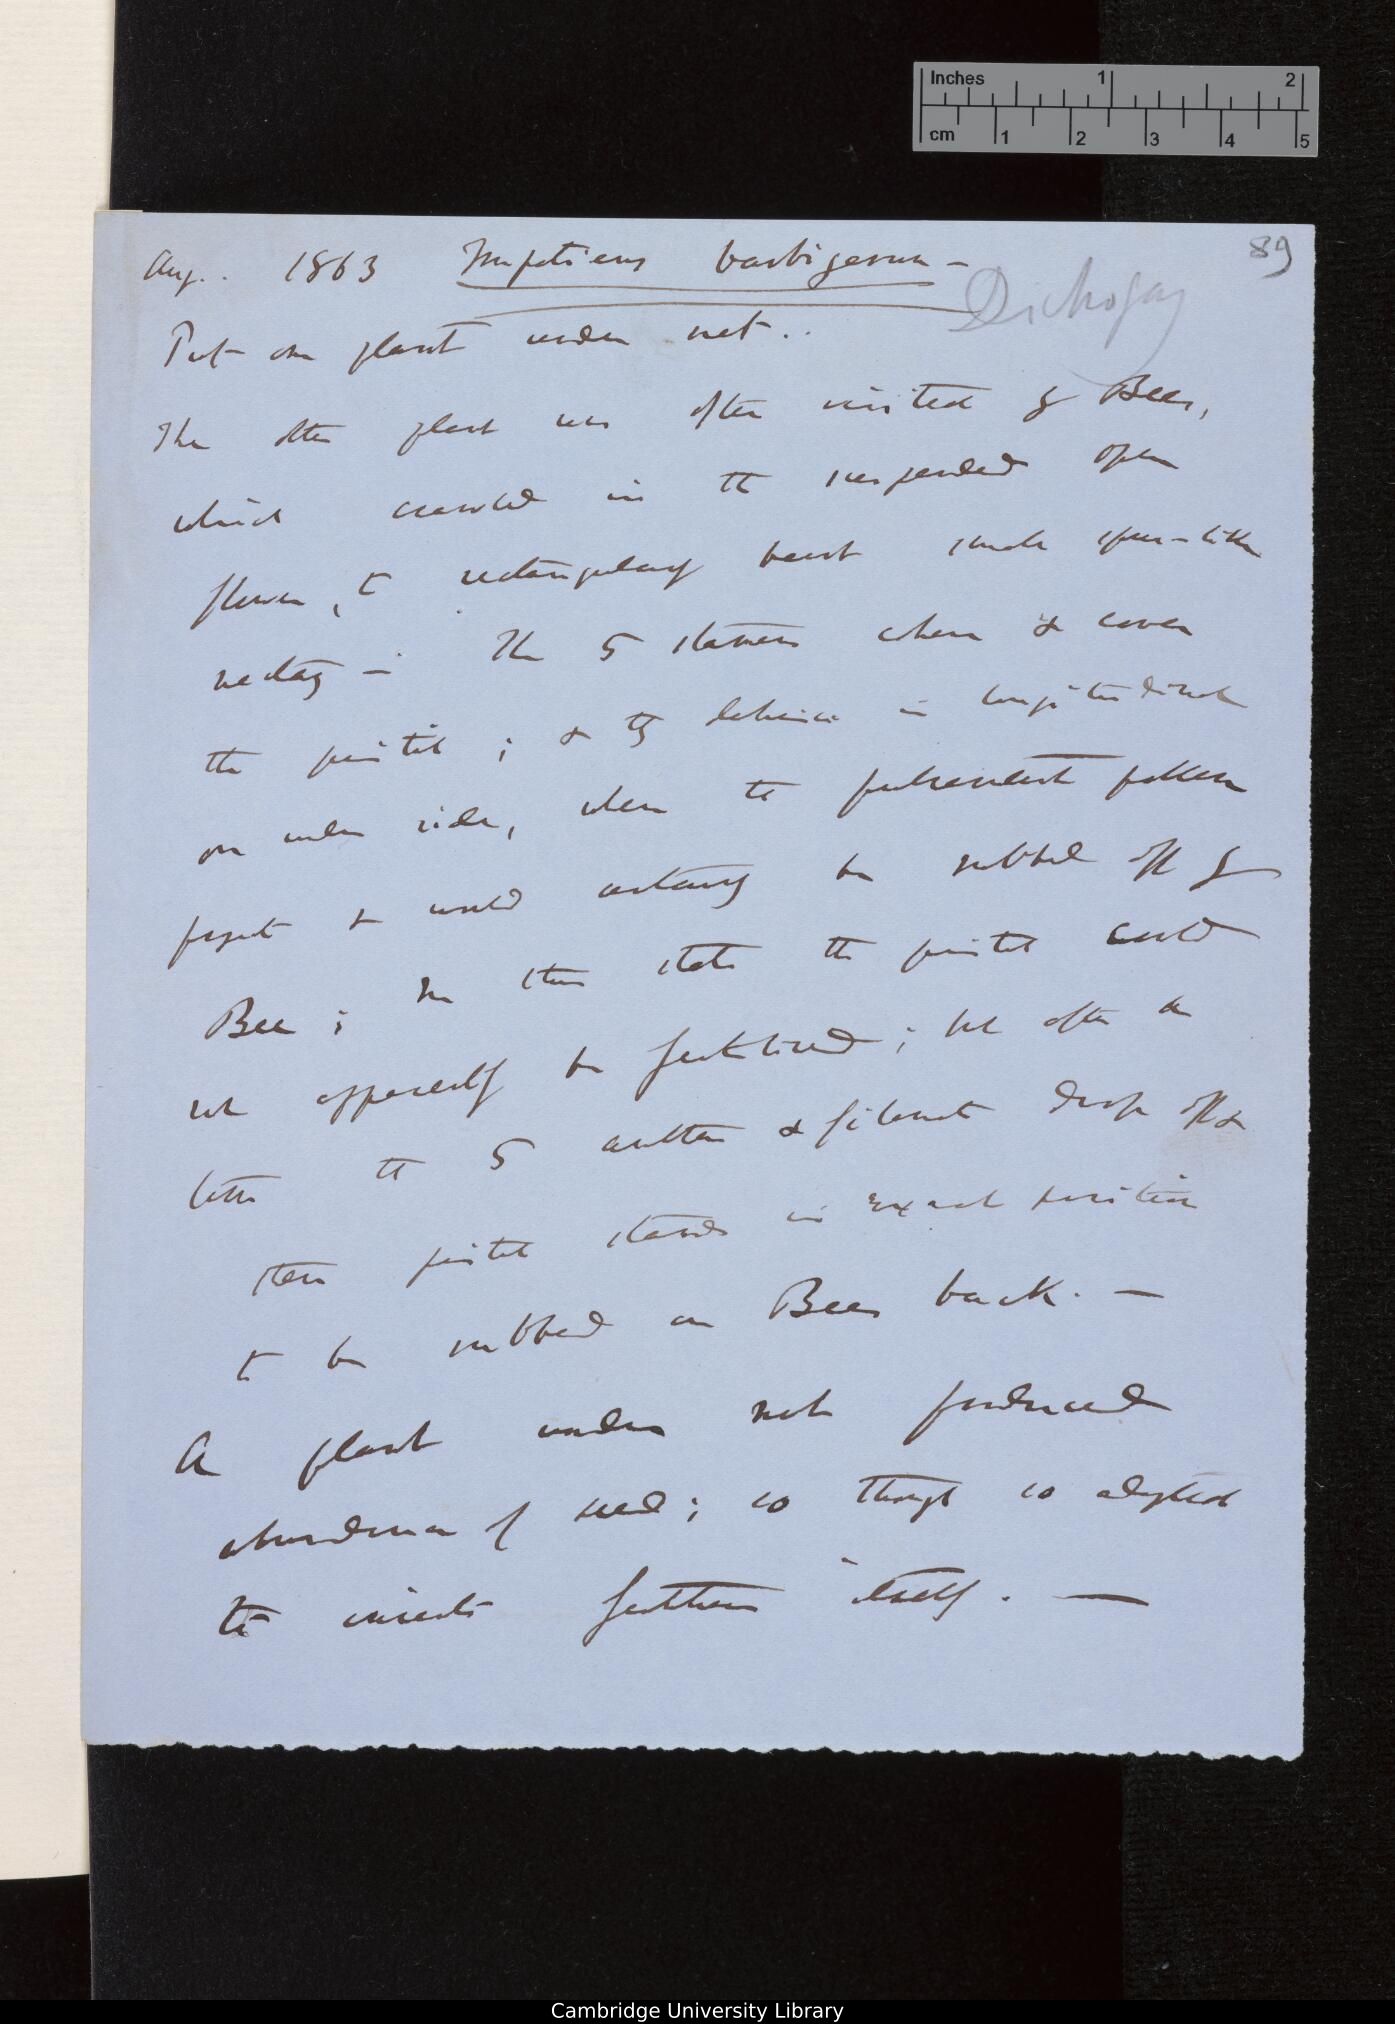 Inches 1 2
cm 1 2 3 4 5
89
Aug. 1863 Impatiens barbigerum —
Dichogamy
Put one plant under net..
The other plant was often visited by Bees,
which crawled in the suspended open
flower, to rectangularly bent small spur-like
nectary — The 5 stamens cohere & cover
the pistil; & they dehisce in longitudinal
on under side, when the pulverulent pollen
& would certainly be rubbed off by
Bee; in this state the pistil could
not apparently be fertilised; but after a
little the 5 anthers & filaments drop off &
then pistil stands in exact position
to be rubbed on Bees back. —
A plant under net produced
abundance of seed; so though so adapted
to insects fertilises itself. —
Cambridge University Library